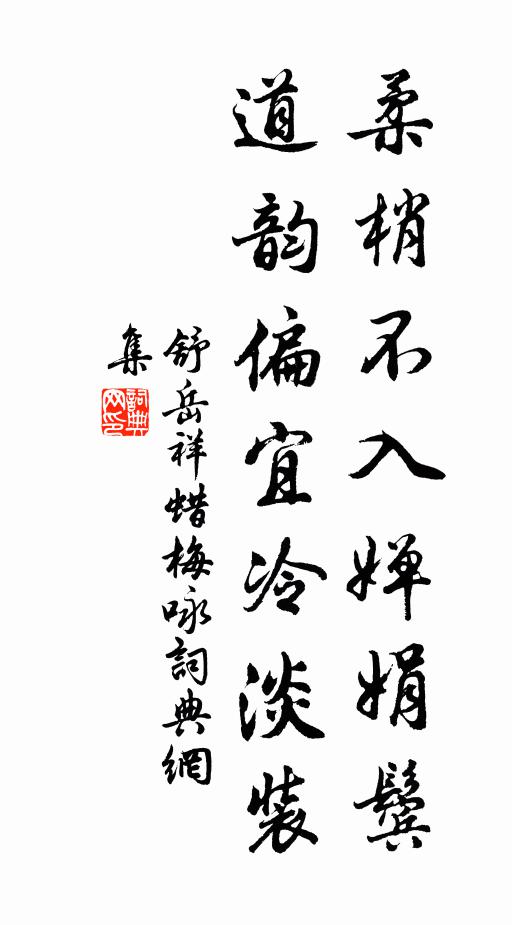 柔梢不入婵娟鬓
道韵偏宜冷淡装
舒岳祥蜡梅咏詞典網
集
詞典
网印